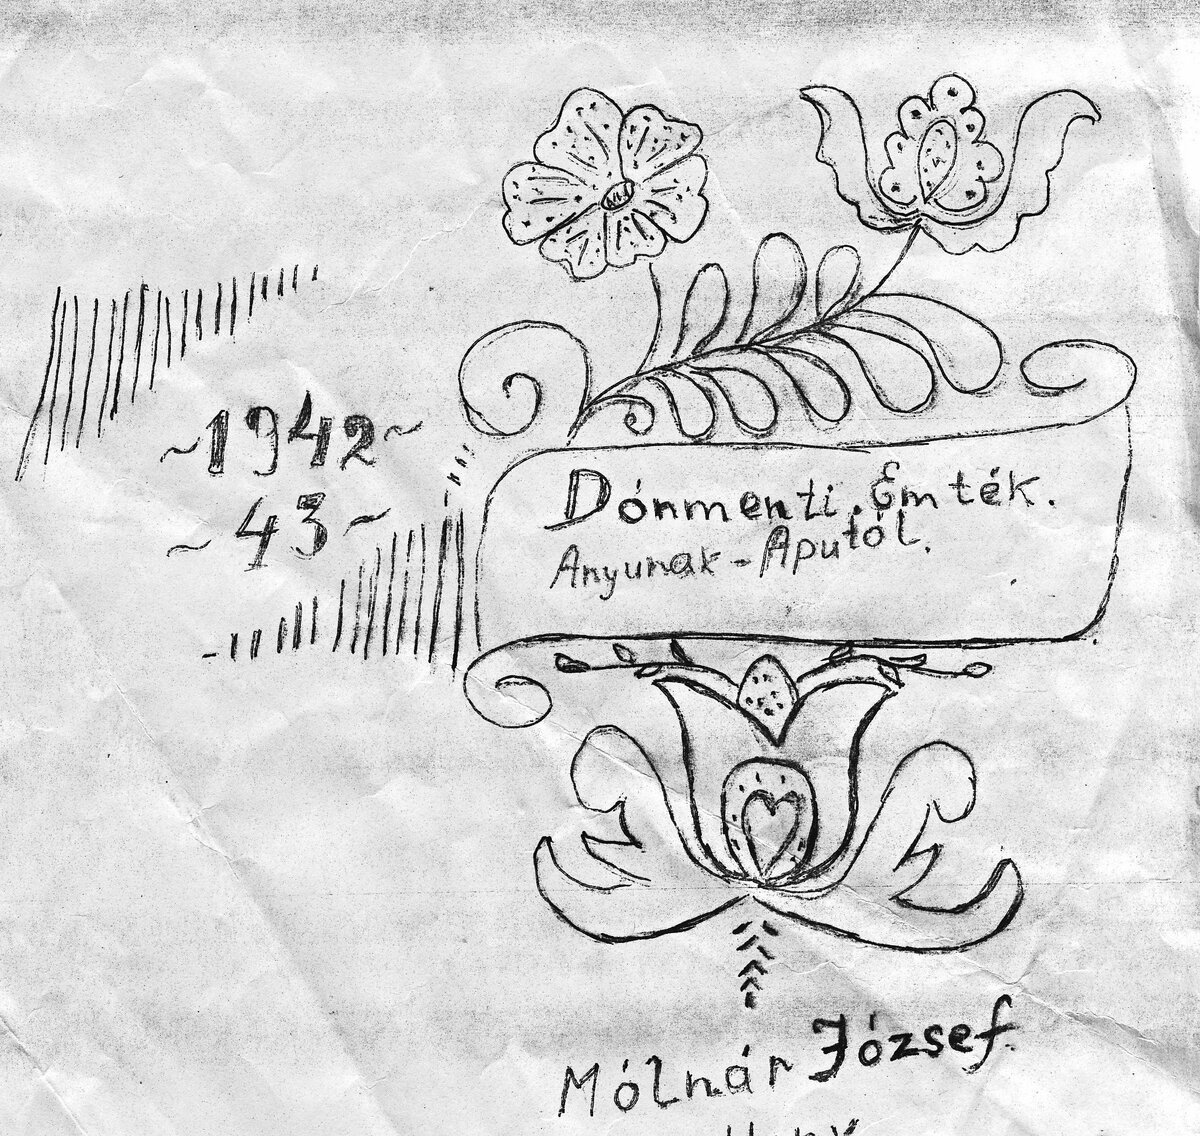 ~1942~
~43~
Dónmenti.Emték.
Anyunak-Aputól.
Mólnár József.